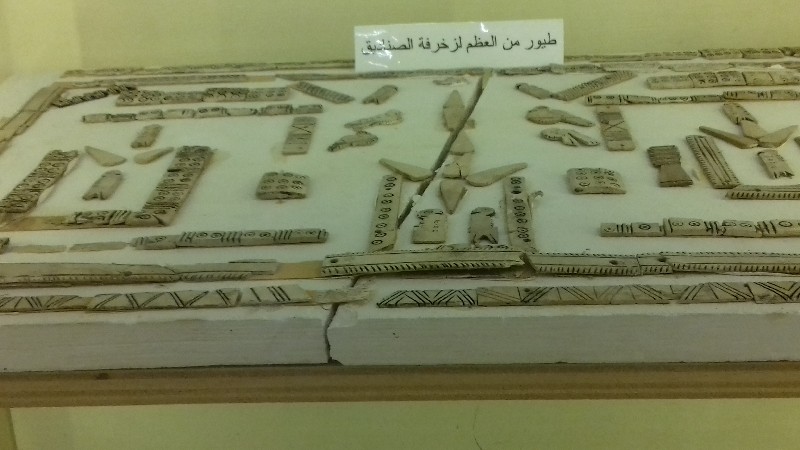 طيور من العظم لزخرفة الصناديق